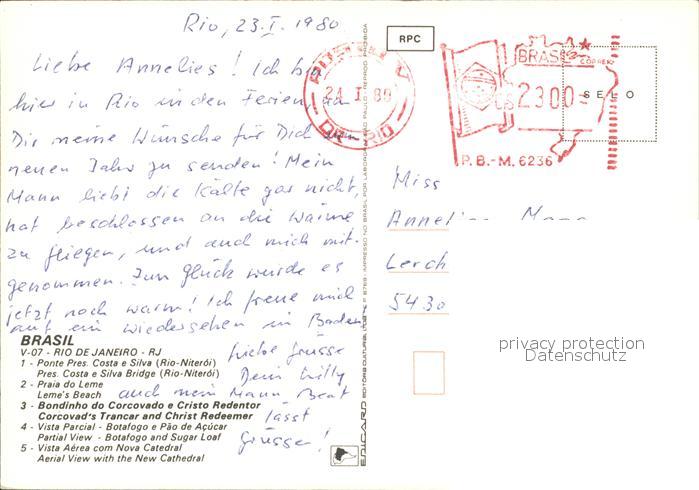 Rio, 23.I.1980
Liebe Annelies! Ich bin
hier in Rio in den Ferien, um
Dir meine Wünsche für Dich zum
neuen Jahr zu senden! Mein
Mann liebt die Kälte gar nicht,
hat beschlossen an die Wärme
zu fliegen, und auch mich mit-
genommen. Zum Glück wurde es
jetzt noch warm! Ich freue mich
auf ein wiedersehen in Baden
Liebe Grüsse
Dein Willy
auch mein Mann Beat
lässt
grüssen!
BRASIL
V-07 - RIO DE JANEIRO - RJ
1 - Ponte Pres. Costa e Silva (Rio-Niterói)
Pres. Costa e Silva Bridge (Rio-Niterói)
2 - Praia do Leme
Leme's Beach
3 - Bondinho do Corcovado e Cristo Redentor
Corcovad's Trancar and Christ Redeemer
4 - Vista Parcial - Botafogo e Pão de Açúcar
Partial View - Botafogo and Sugar Loaf
5 - Vista Aérea com Nova Catedral
Aerial View with the New Cathedral
EDICARD EDITORA CULTURAL LTDA
IMPRESSO NO BRASIL
PROIBIDA
RPC
24 I 80
DR-RIO
BRASIL
CORREIO
2300
SELO
P.B.-M. 6236
Miss
Lerch
5430
privacy protection
Datenschutz